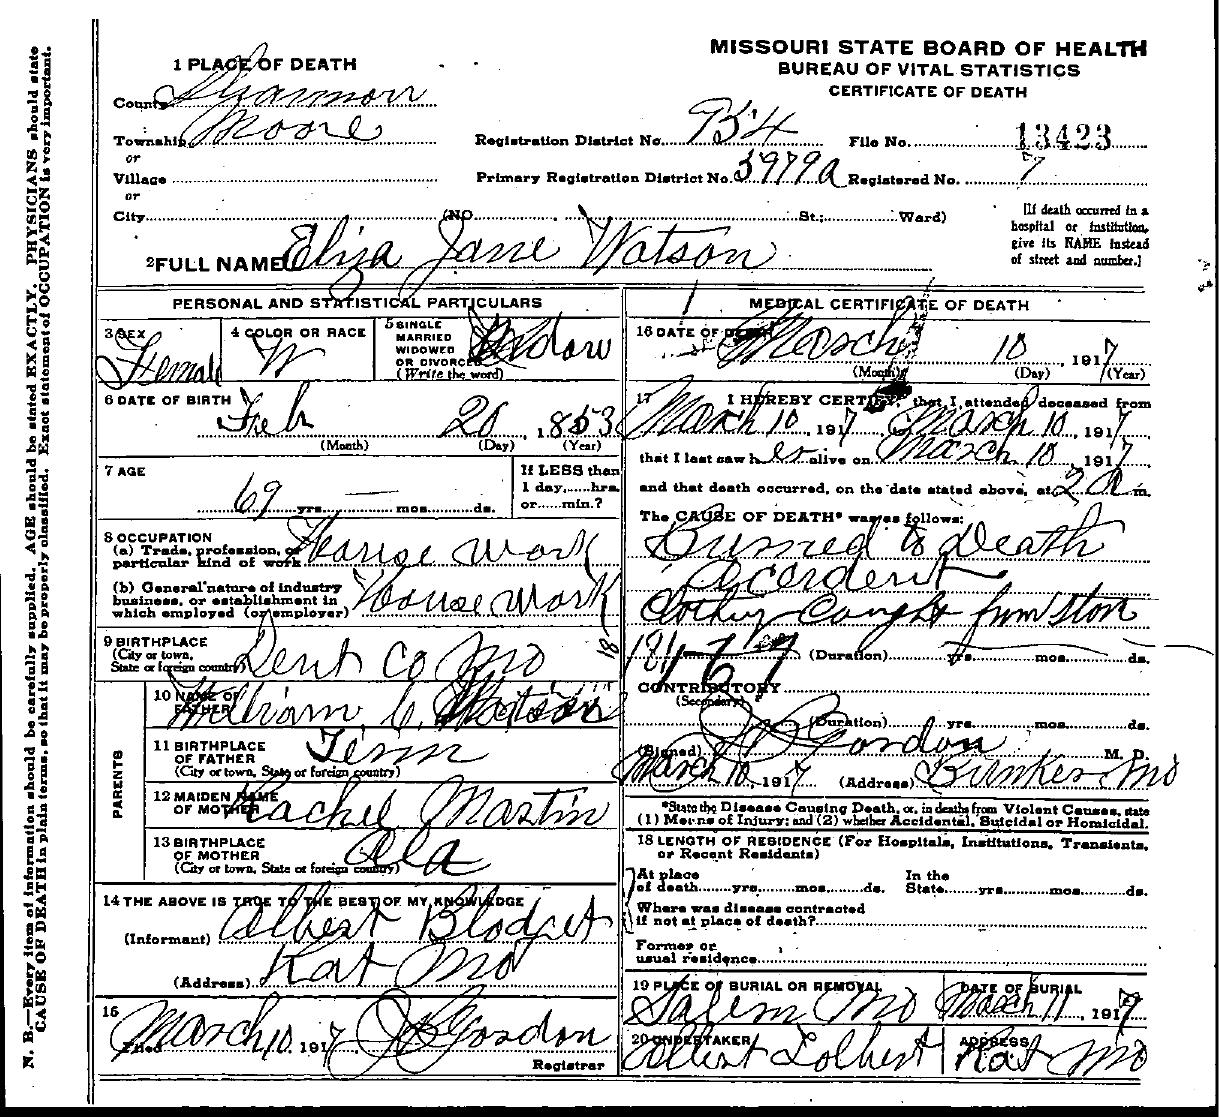 N. B.—Every item of information should be carefully supplied. AGE should be stated EXACTLY. PHYSICIANS should state
CAUSE OF DEATH in plain terms, so that it may be properly classified. Exact statement of OCCUPATION is very important.
MISSOURI STATE BOARD OF HEALTH
BUREAU OF VITAL STATISTICS
CERTIFICATE OF DEATH
1 PLACE OF DEATH
County Shannon
Township Moore
or
Village
or
City (NO. St.; Ward)
Registration District No. 954 File No. 13423
Primary Registration District No. 5979a Registered No. 7
[If death occurred in a
hospital or institution,
give its NAME instead
of street and number.]
2 FULL NAME Eliza Jane Watson
PERSONAL AND STATISTICAL PARTICULARS
3 SEX Female
4 COLOR OR RACE W
5 SINGLE
MARRIED
WIDOWED
OR DIVORCED
(Write the word) Widow
6 DATE OF BIRTH
Feb 20, 1853
(Month) (Day) (Year)
7 AGE
69 yrs. — mos. ds.
If LESS than
1 day, hrs.
or min.?
8 OCCUPATION
(a) Trade, profession, or
particular kind of work House work
(b) General nature of industry
business, or establishment in
which employed (or employer) House work
9 BIRTHPLACE
(City or town,
State or foreign country) Dent Co Mo
PARENTS
10 NAME OF
FATHER William C. Watson
11 BIRTHPLACE
OF FATHER
(City or town, State or foreign country) Tenn
12 MAIDEN NAME
OF MOTHER Rachel Martin
13 BIRTHPLACE
OF MOTHER
(City or town, State or foreign country) Ala
14 THE ABOVE IS TRUE TO THE BEST OF MY KNOWLEDGE
(Informant) Albert Blodget
(Address) Rat Mo
15
Filed March 10, 1917 J B Gordon
Registrar
MEDICAL CERTIFICATE OF DEATH
16 DATE OF DEATH
March 10, 1917
(Month) (Day) (Year)
17 I HEREBY CERTIFY, that I attended deceased from
March 10, 1917, March 10, 1917
that I last saw her alive on March 10, 1917
and that death occurred, on the date stated above, at 2 a m.
The CAUSE OF DEATH* was as follows:
Burned to Death
Accordent
Clothing Caught from Stove
(Duration) yrs. mos. ds.
CONTRIBUTORY
(Secondary)
(Duration) yrs. mos. ds.
(Signed) J B Gordon M. D.
March 10, 1917 (Address) Bunker Mo
*State the Disease Causing Death, or, in deaths from Violent Causes, state
(1) Means of Injury; and (2) whether Accidental, Suicidal or Homicidal.
18 LENGTH OF RESIDENCE (For Hospitals, Institutions, Transients,
or Recent Residents)
At place In the
of death yrs. mos. ds. State yrs. mos. ds.
Where was disease contracted
if not at place of death?
Former or
usual residence
19 PLACE OF BURIAL OR REMOVAL DATE OF BURIAL
Salem Mo March 11, 1917
20 UNDERTAKER ADDRESS
Albert Tolbert Rat Mo